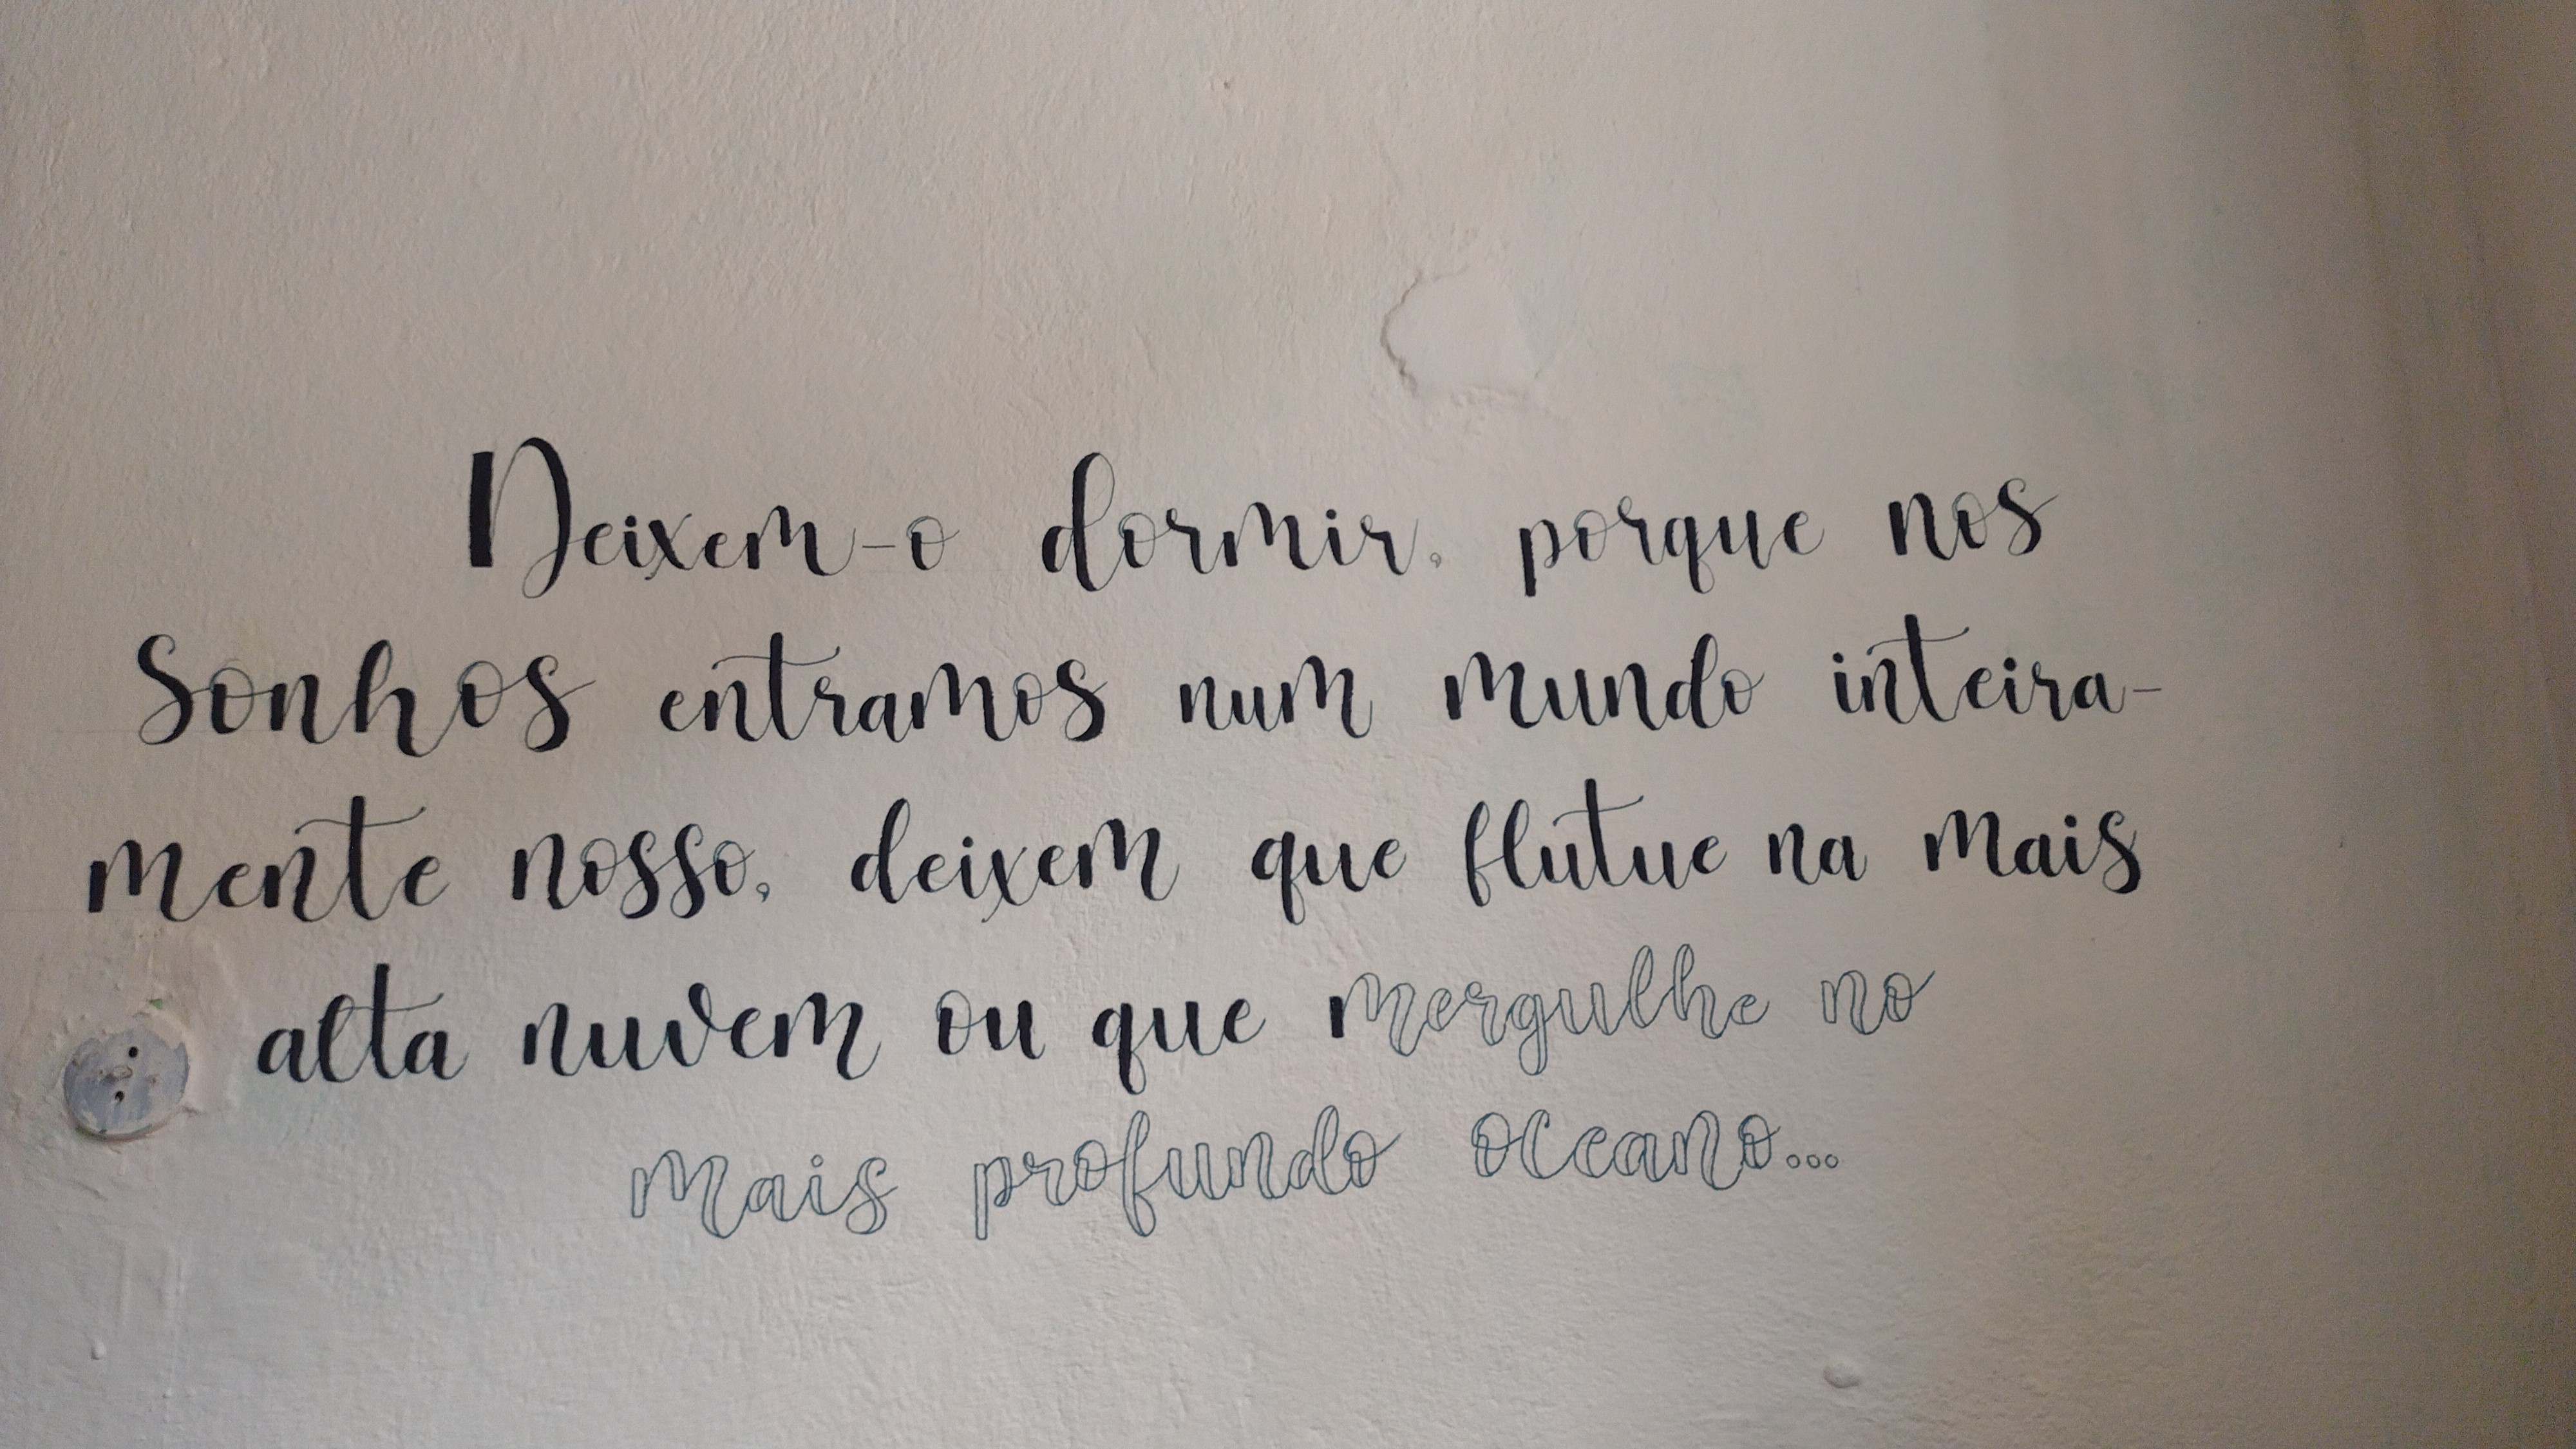 Deixem-o dormir, porque nos
Sonhos entramos num mundo inteira-
mente nosso, deixem que flutue na mais
alta nuvem ou que mergulhe no
mais profundo oceano...